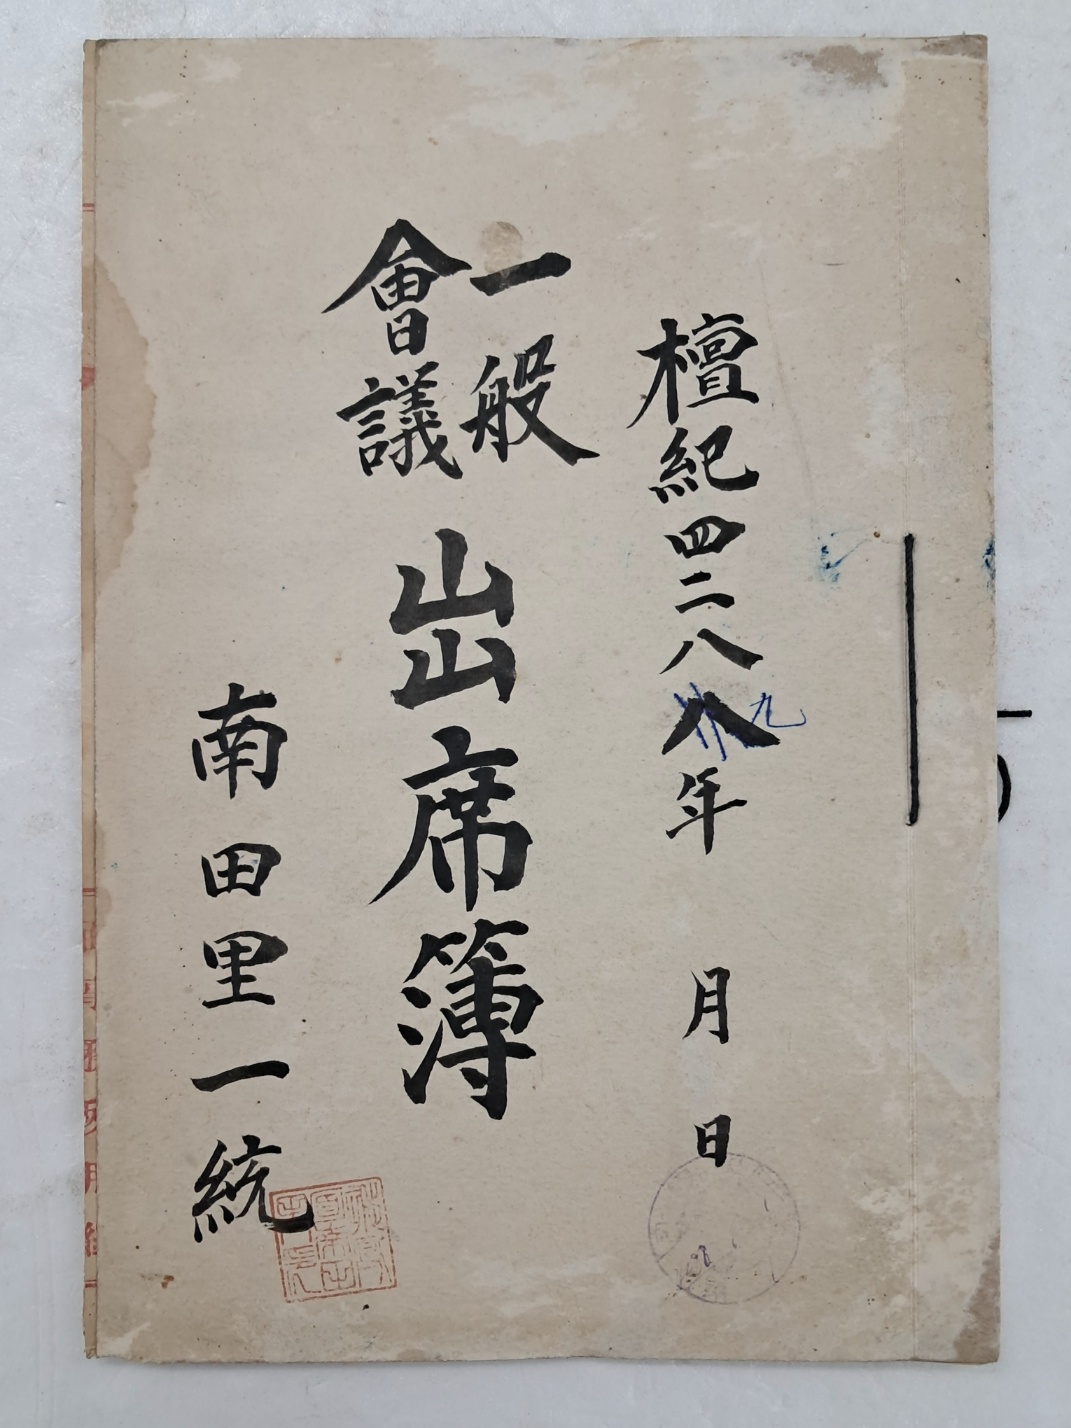 檀紀四二八八九年 月 日
一般
會議
出席簿
南田里一統